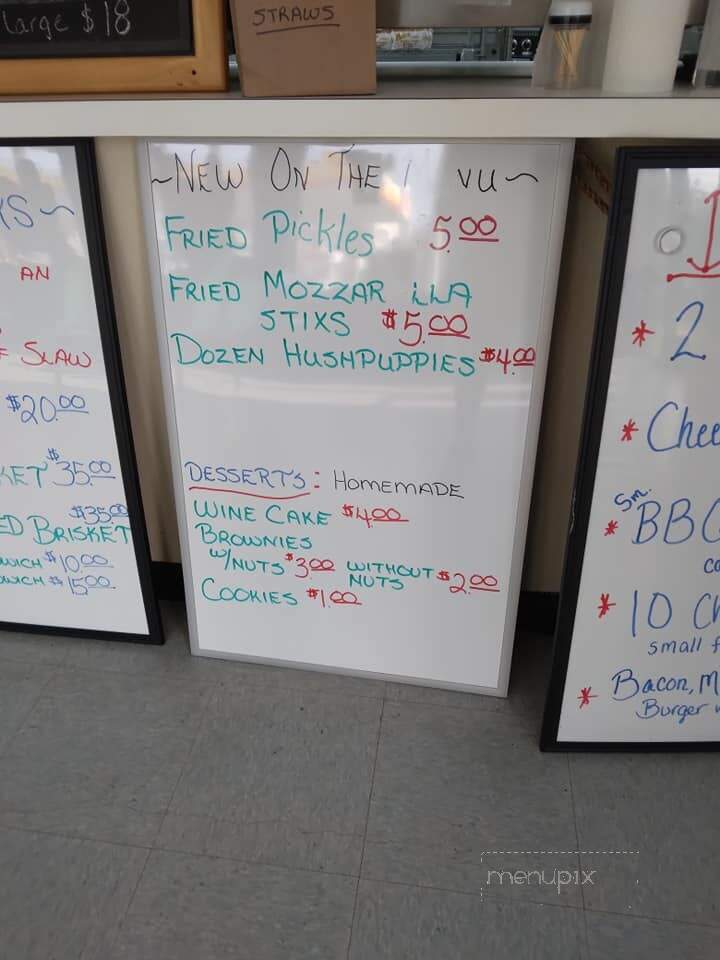 Large $18
STRAWS
~NEW ON THE VU~
FRIED Pickles 5.00
FRIED MOZZAR LLA
STIXS $5.00
DOZEN HUSHPUPPIES $4.00
DESSERTS: HOMEMADE
WINE CAKE $4.00
BROWNIES
W/NUTS $3.00 WITHOUT NUTS $2.00
COOKIES $1.00
AN
SLAW
$20.00
KET $35.00
$35.00
ED BRISKET
WICH $10.00
WICH $15.00
* 2
* Chee
Sm.
* BBQ
* 10 Ch
small f
* Bacon, M
Burger
menupix